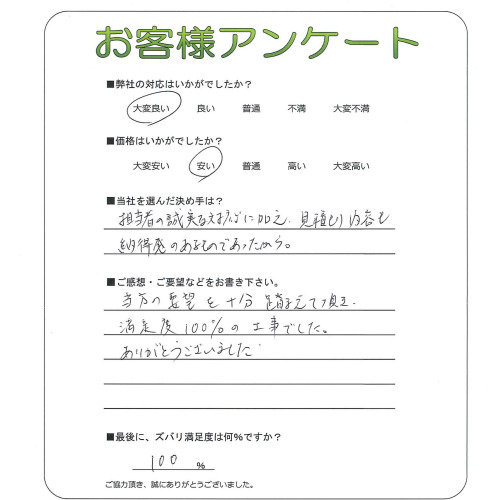 お客様アンケート
■弊社の対応はいかがでしたか？
大変良い 良い 普通 不満 大変不満
■価格はいかがでしたか？
大変安い 安い 普通 高い 大変高い
■当社を選んだ決め手は？
担当者の誠実な に加え、見積もり内容も
納得感のあるものであったから。
■ご感想・ご要望などをお書き下さい。
当方の要望を十分踏まえて頂き、
満足度100%の工事でした。
ありがとうございました
■最後に、ズバリ満足度は何％ですか？
100 %
ご協力頂き、誠にありがとうございました。